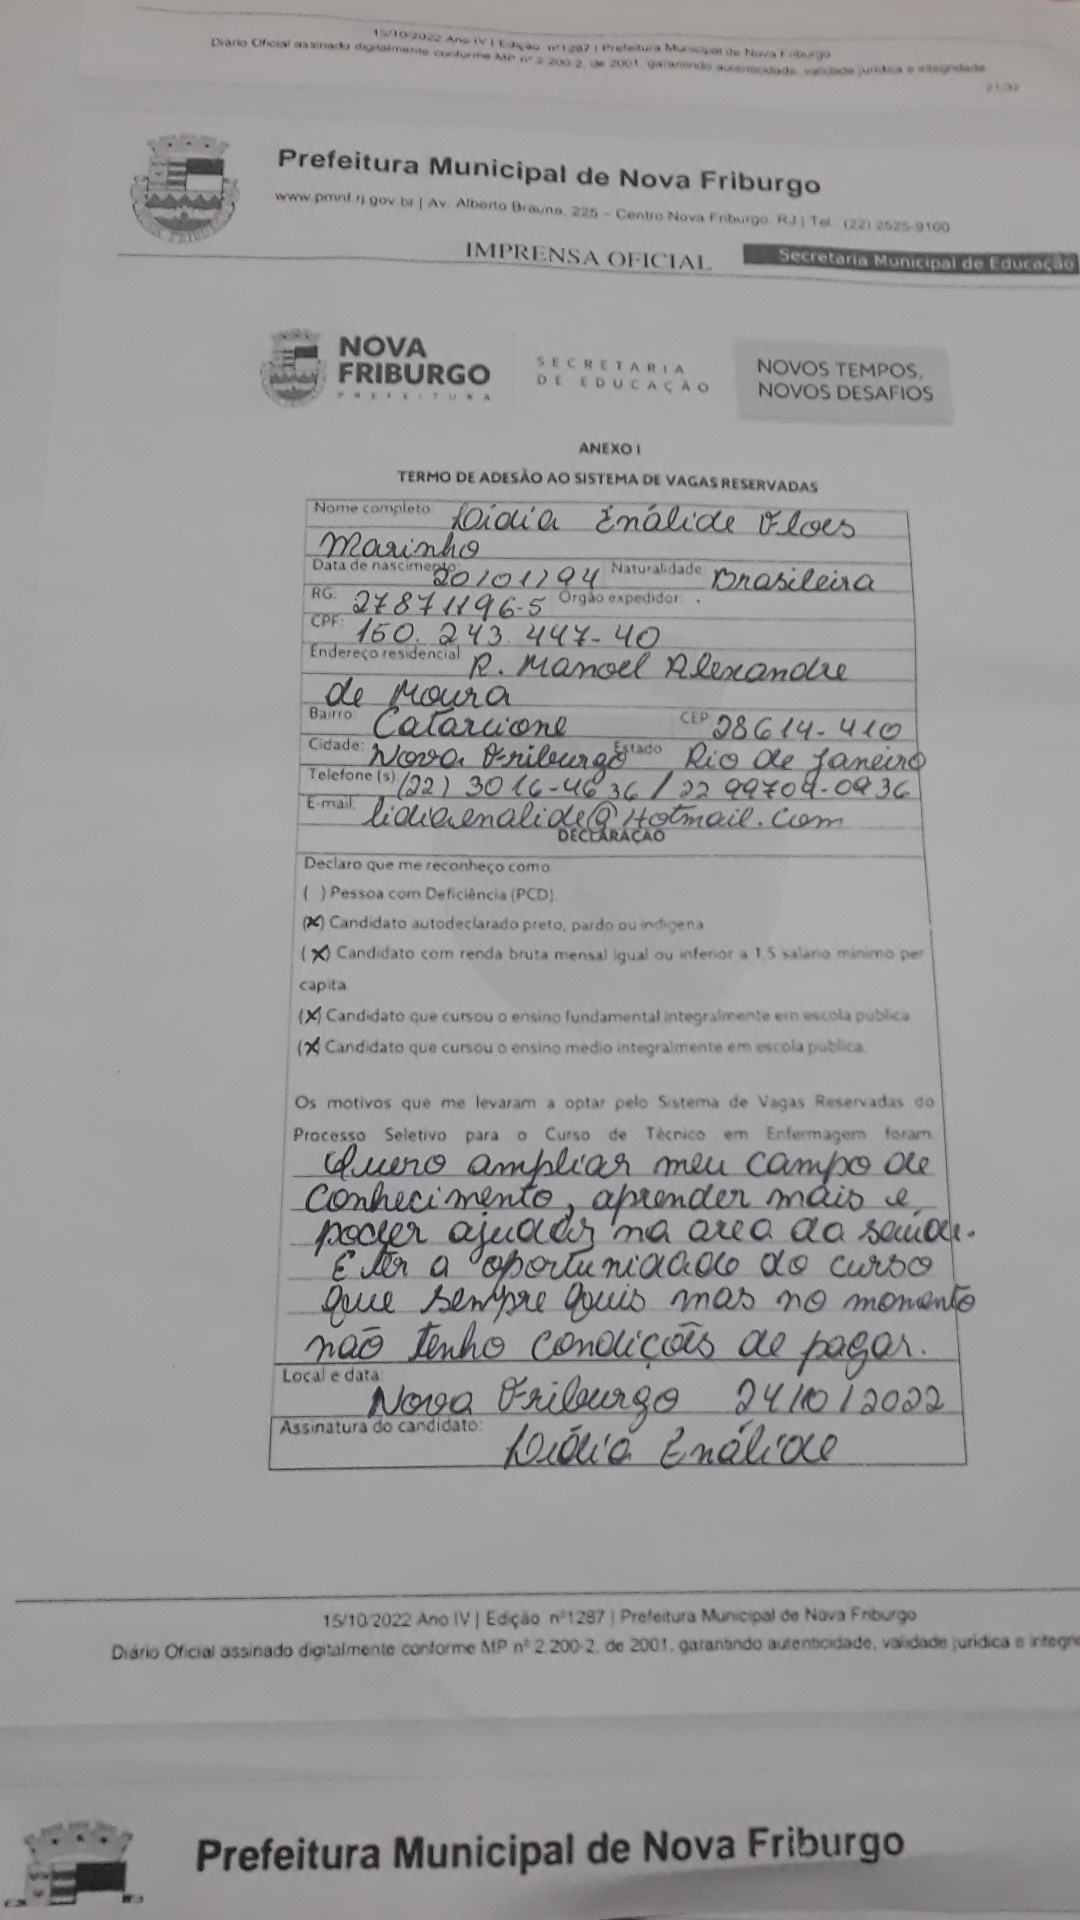 15/10/2022 Ano IV | Edição nº1287 | Prefeitura Municipal de Nova Friburgo
Diário Oficial assinado digitalmente conforme MP nº 2.200-2, de 2001, garantindo autenticidade, validade jurídica e integridade
21/32
Prefeitura Municipal de Nova Friburgo
www.pmnf.rj.gov.br | Av. Alberto Braune, 225 – Centro Nova Friburgo, RJ | Tel. (22) 2525-9100
IMPRENSA OFICIAL
Secretaria Municipal de Educação
NOVA
FRIBURGO
PREFEITURA
SECRETARIA
DE EDUCAÇÃO
NOVOS TEMPOS,
NOVOS DESAFIOS
ANEXO I
TERMO DE ADESÃO AO SISTEMA DE VAGAS RESERVADAS
Nome completo: Lidia Enálide Floes
Marinho
Data de nascimento: 20/01/94 Naturalidade: Brasileira
RG: 27871196-5 Órgão expedidor:
CPF: 150.243.447-40
Endereço residencial R. Manoel Alexandre
de Moura
Bairro: Catarcione CEP 28614-410
Cidade: Nova Friburgo Estado Rio de Janeiro
Telefone (s): (22) 3016-4636 / 22 99704-0936
E-mail: lidiaenalide@Hotmail.com
DECLARAÇÃO
Declaro que me reconheço como
( ) Pessoa com Deficiência (PCD).
(X) Candidato autodeclarado preto, pardo ou indígena
(X) Candidato com renda bruta mensal igual ou inferior a 1,5 salário mínimo per
capita
(X) Candidato que cursou o ensino fundamental integralmente em escola pública
(X) Candidato que cursou o ensino médio integralmente em escola pública.
Os motivos que me levaram a optar pelo Sistema de Vagas Reservadas do
Processo Seletivo para o Curso de Técnico em Enfermagem foram:
Quero ampliar meu campo de
conhecimento, aprender mais e
poder ajudar na area da saúde.
E ter a oportunidade do curso
que sempre quis mas no momento
não tenho condições de pagar.
Local e data: Nova Friburgo 24/10/2022
Assinatura do candidato: Lidia Enálide
15/10/2022 Ano IV | Edição nº1287 | Prefeitura Municipal de Nova Friburgo
Diário Oficial assinado digitalmente conforme MP nº 2.200-2, de 2001, garantindo autenticidade, validade jurídica e integri
Prefeitura Municipal de Nova Friburgo